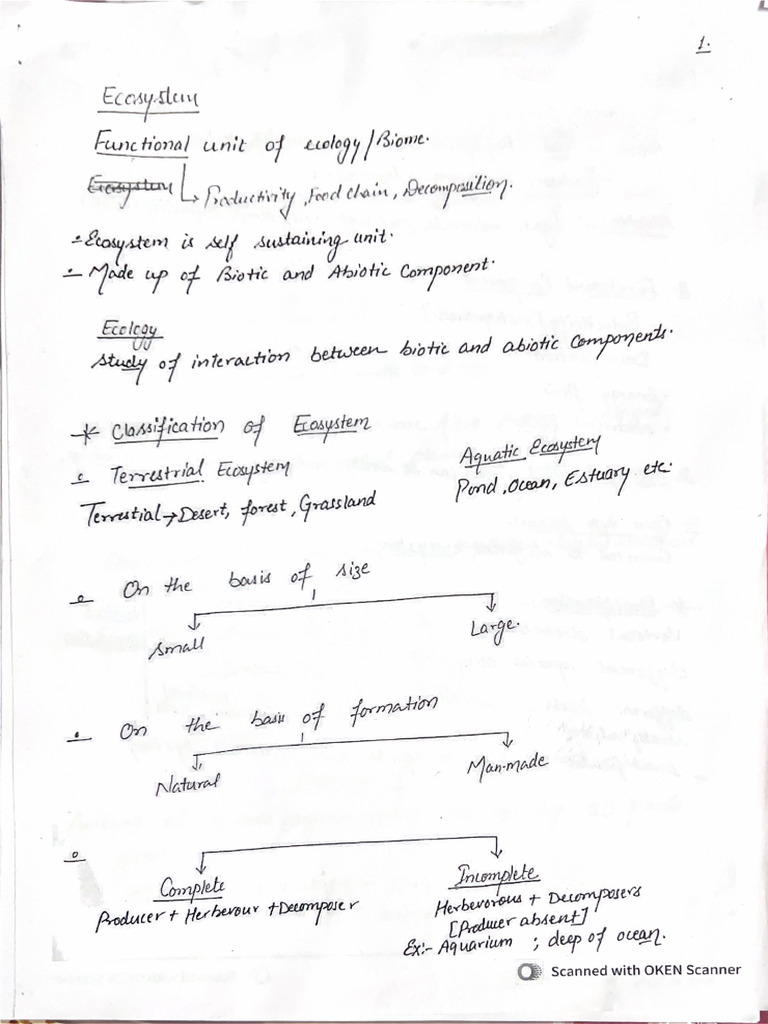 1.
Ecosystem
Functional unit of ecology/Biome.
Ecosystem
Productivity, Food chain, Decomposition.
Ecosystem is self sustaining unit.
Made up of Biotic and Abiotic Component.
Ecology
study of interaction between biotic and abiotic components.
* Classification of Ecosystem
Terrestrial Ecosystem
Aquatic Ecosystem
Pond, Ocean, Estuary etc.
Terrestial → Desert, forest, Grassland
On the basis of size
Small
Large.
On the basis of formation
Natural
Man-made
Complete
Incomplete
Producer + Herbevour + Decomposer
Herbevorous + Decomposers
[Producer absent]
Ex:- Aquarium ; deep of ocean.
Scanned with OKEN Scanner